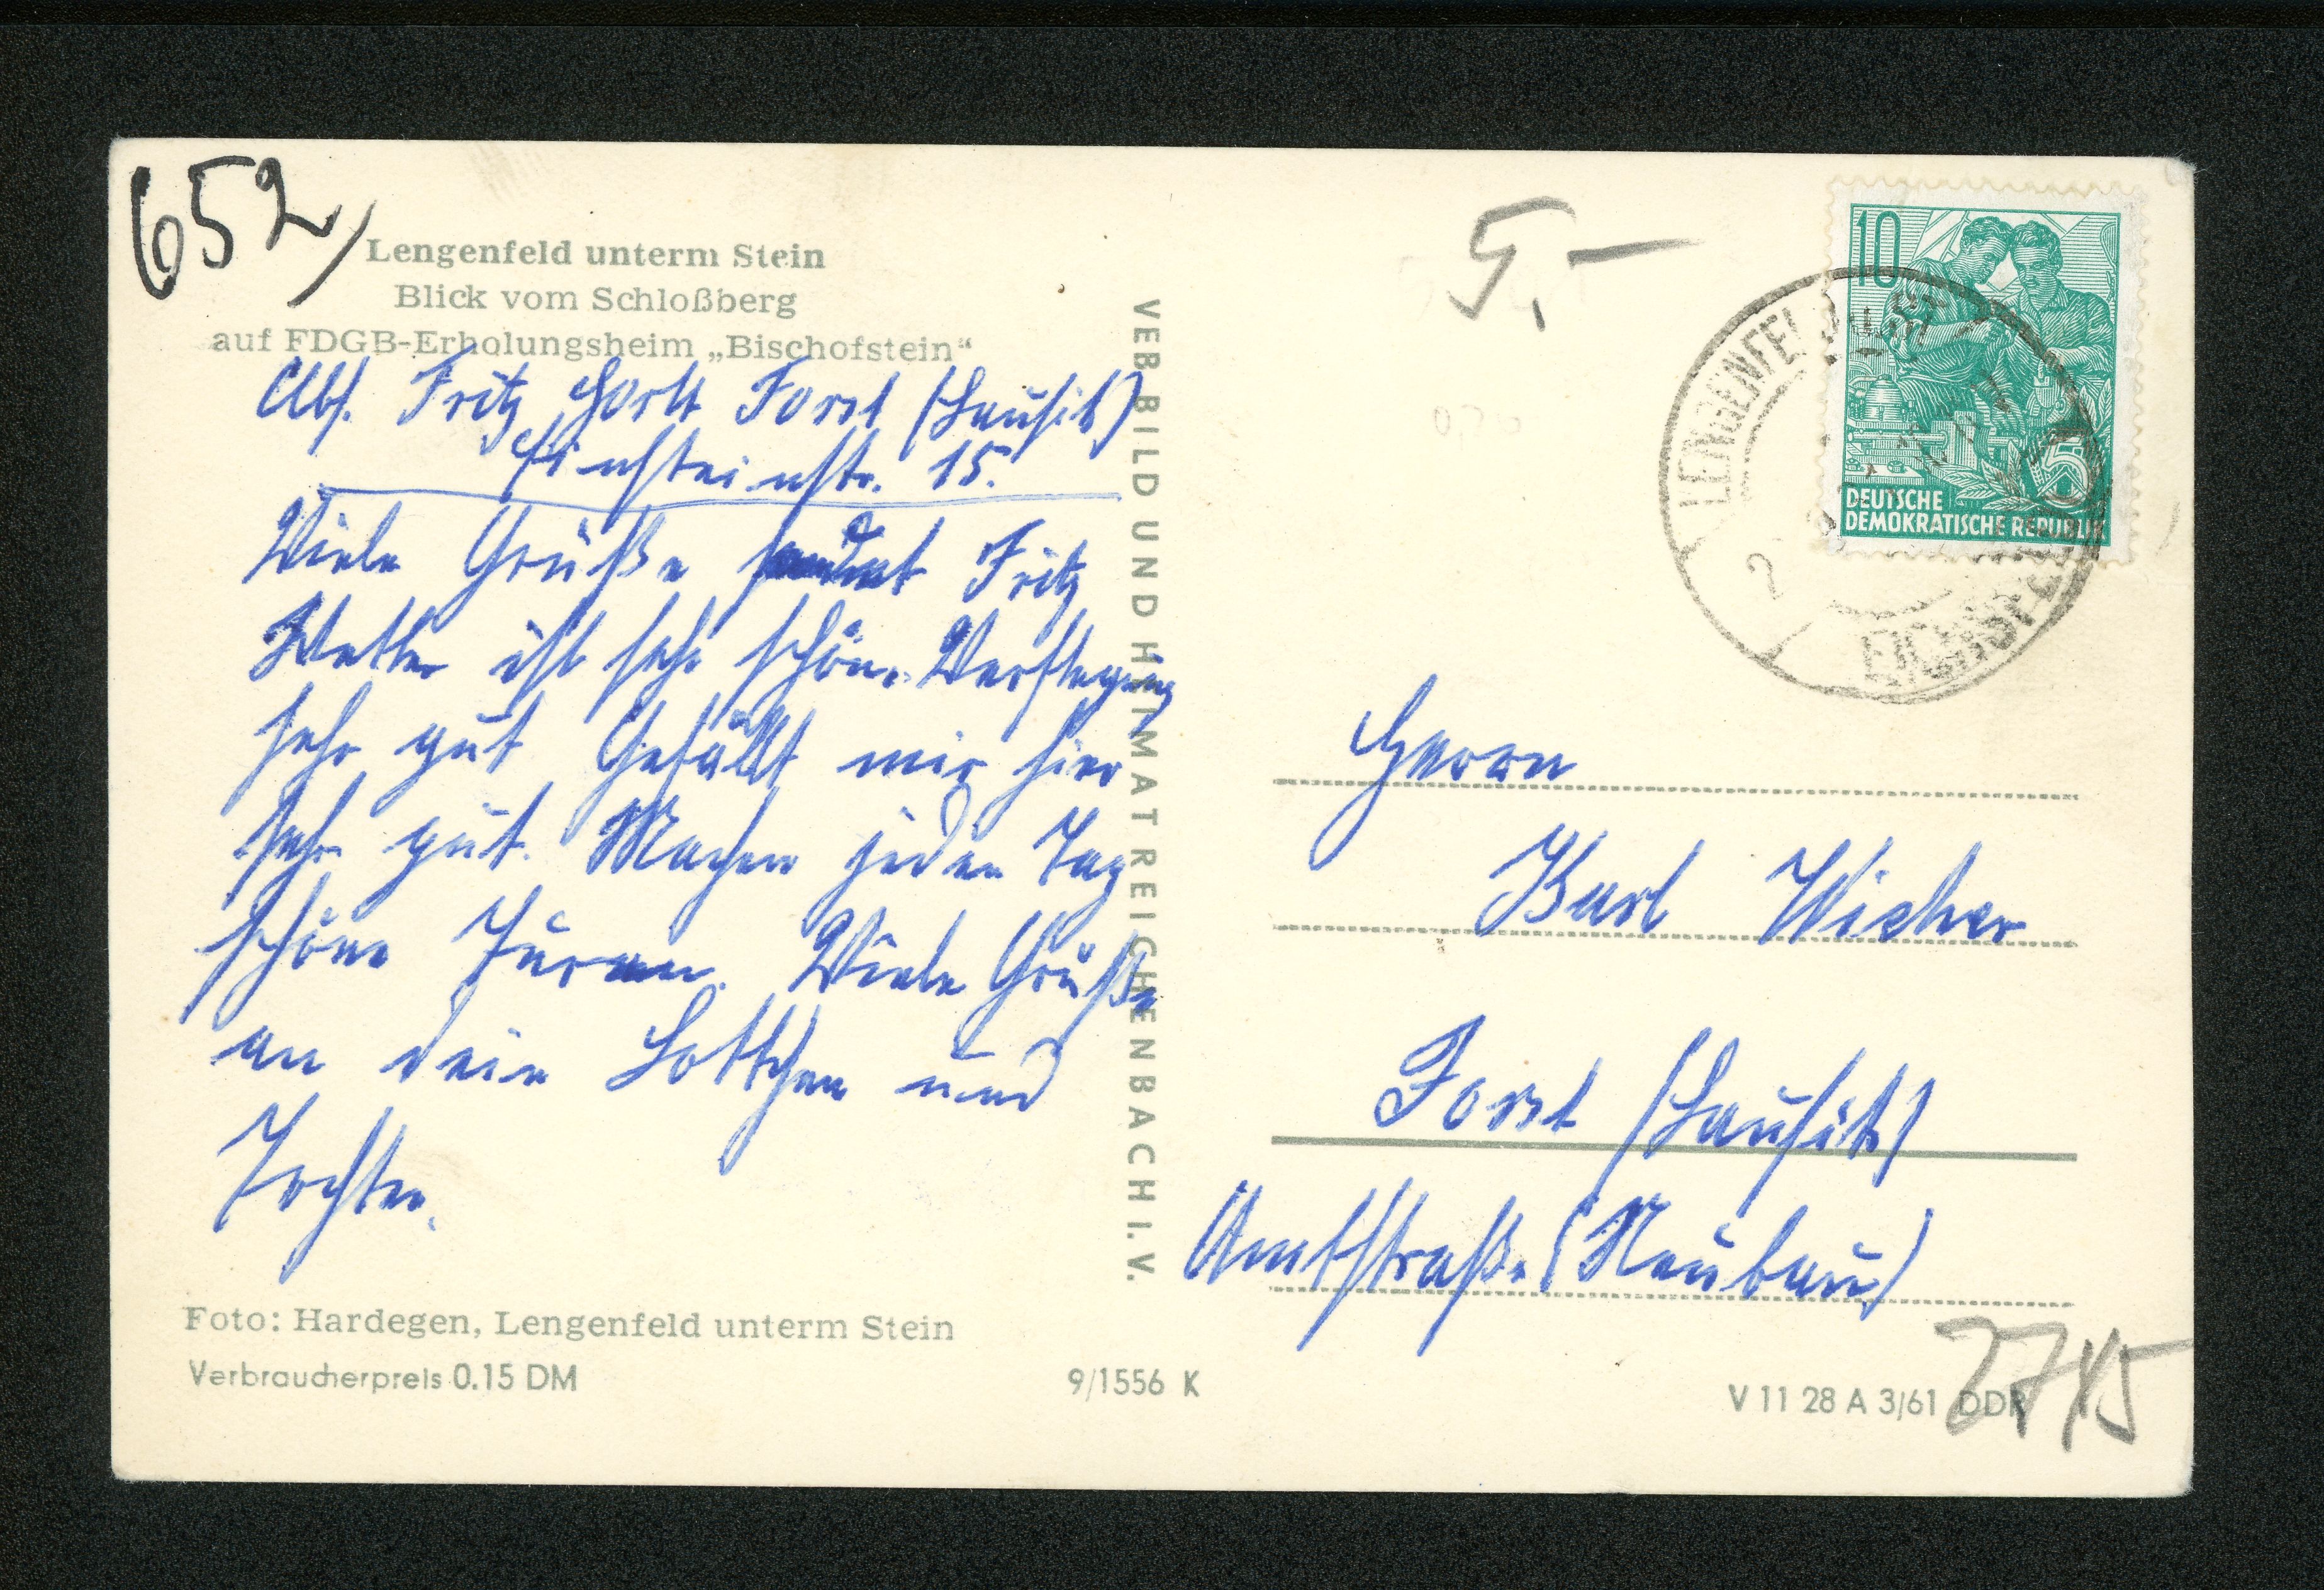 652/
Lengenfeld unterm Stein
Blick vom Schloßberg
auf FDGB-Erholungsheim „Bischofstein"
Abs. Fritz Forst (Lausitz)
15.
Viele Grüße sendet Fritz
Wetter ist sehr schön. Verflegung
sehr gut Gefällt mir hier
sehr gut. Machen jeden Tag
schöne Turen. Viele Grüße
an dein Lottchen und
Tochter.
Foto: Hardegen, Lengenfeld unterm Stein
Verbraucherpreis 0.15 DM
9/1556 K
VEB BILD UND HEIMAT REICHENBACH I. V.
5,-
10
DEUTSCHE
DEMOKRATISCHE REPUBLIK
5
LENGENFELD
2
Herrn
Karl Wicher
Forst (Lausitz)
Amtstraße (Neubau)
V 11 28 A 3/61 DDR